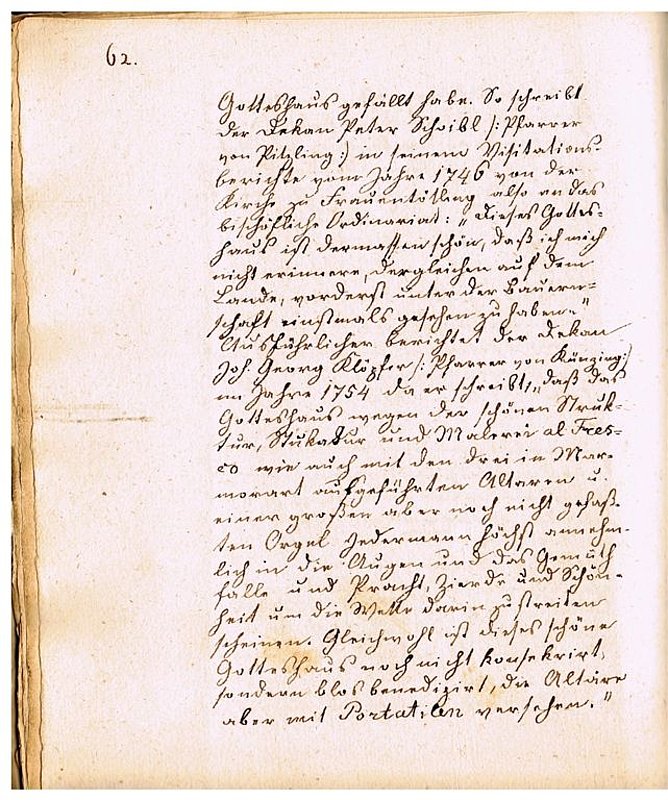 62.
Gotteshaus gefällt habe. So schreibt
der Dekan Peter Schoibl /: Pfarrer
von Pitzling :/ in seinem Visitations-
berichte vom Jahre 1746 von der
Kirche zu Frauentödling also an das
bischöfliche Ordinariat: „Dieses Gottes-
haus ist dermassen schön, daß ich mich
nicht erinnere, dergleichen auf dem
Lande, vorderst unter der Bauern-
schaft einstmals gesehen zu haben."
Ausführlicher berichtet der Dekan
Joh: Georg Klöpfer /: Pfarrer von Künzing :/
im Jahre 1754 da er schreibt, „daß das
Gotteshaus wegen der schönen Struk-
tur, Stukatur und Malerei al Fres-
co wie auch mit den drei in Mar-
morart aufgeführten Altaren u.
einer großen aber noch nicht gefaß-
ten Orgel Jedermann höchst annehm-
lich in die Augen und das Gemüth
falle und Pracht, Zierde und Schön-
heit um die Wette darin zu streiten
scheinen. Gleichwohl ist dieses schöne
Gotteshaus noch nicht konsekrirt,
sondern blos benedizirt, die Altäre
aber mit Portatilen versehen."